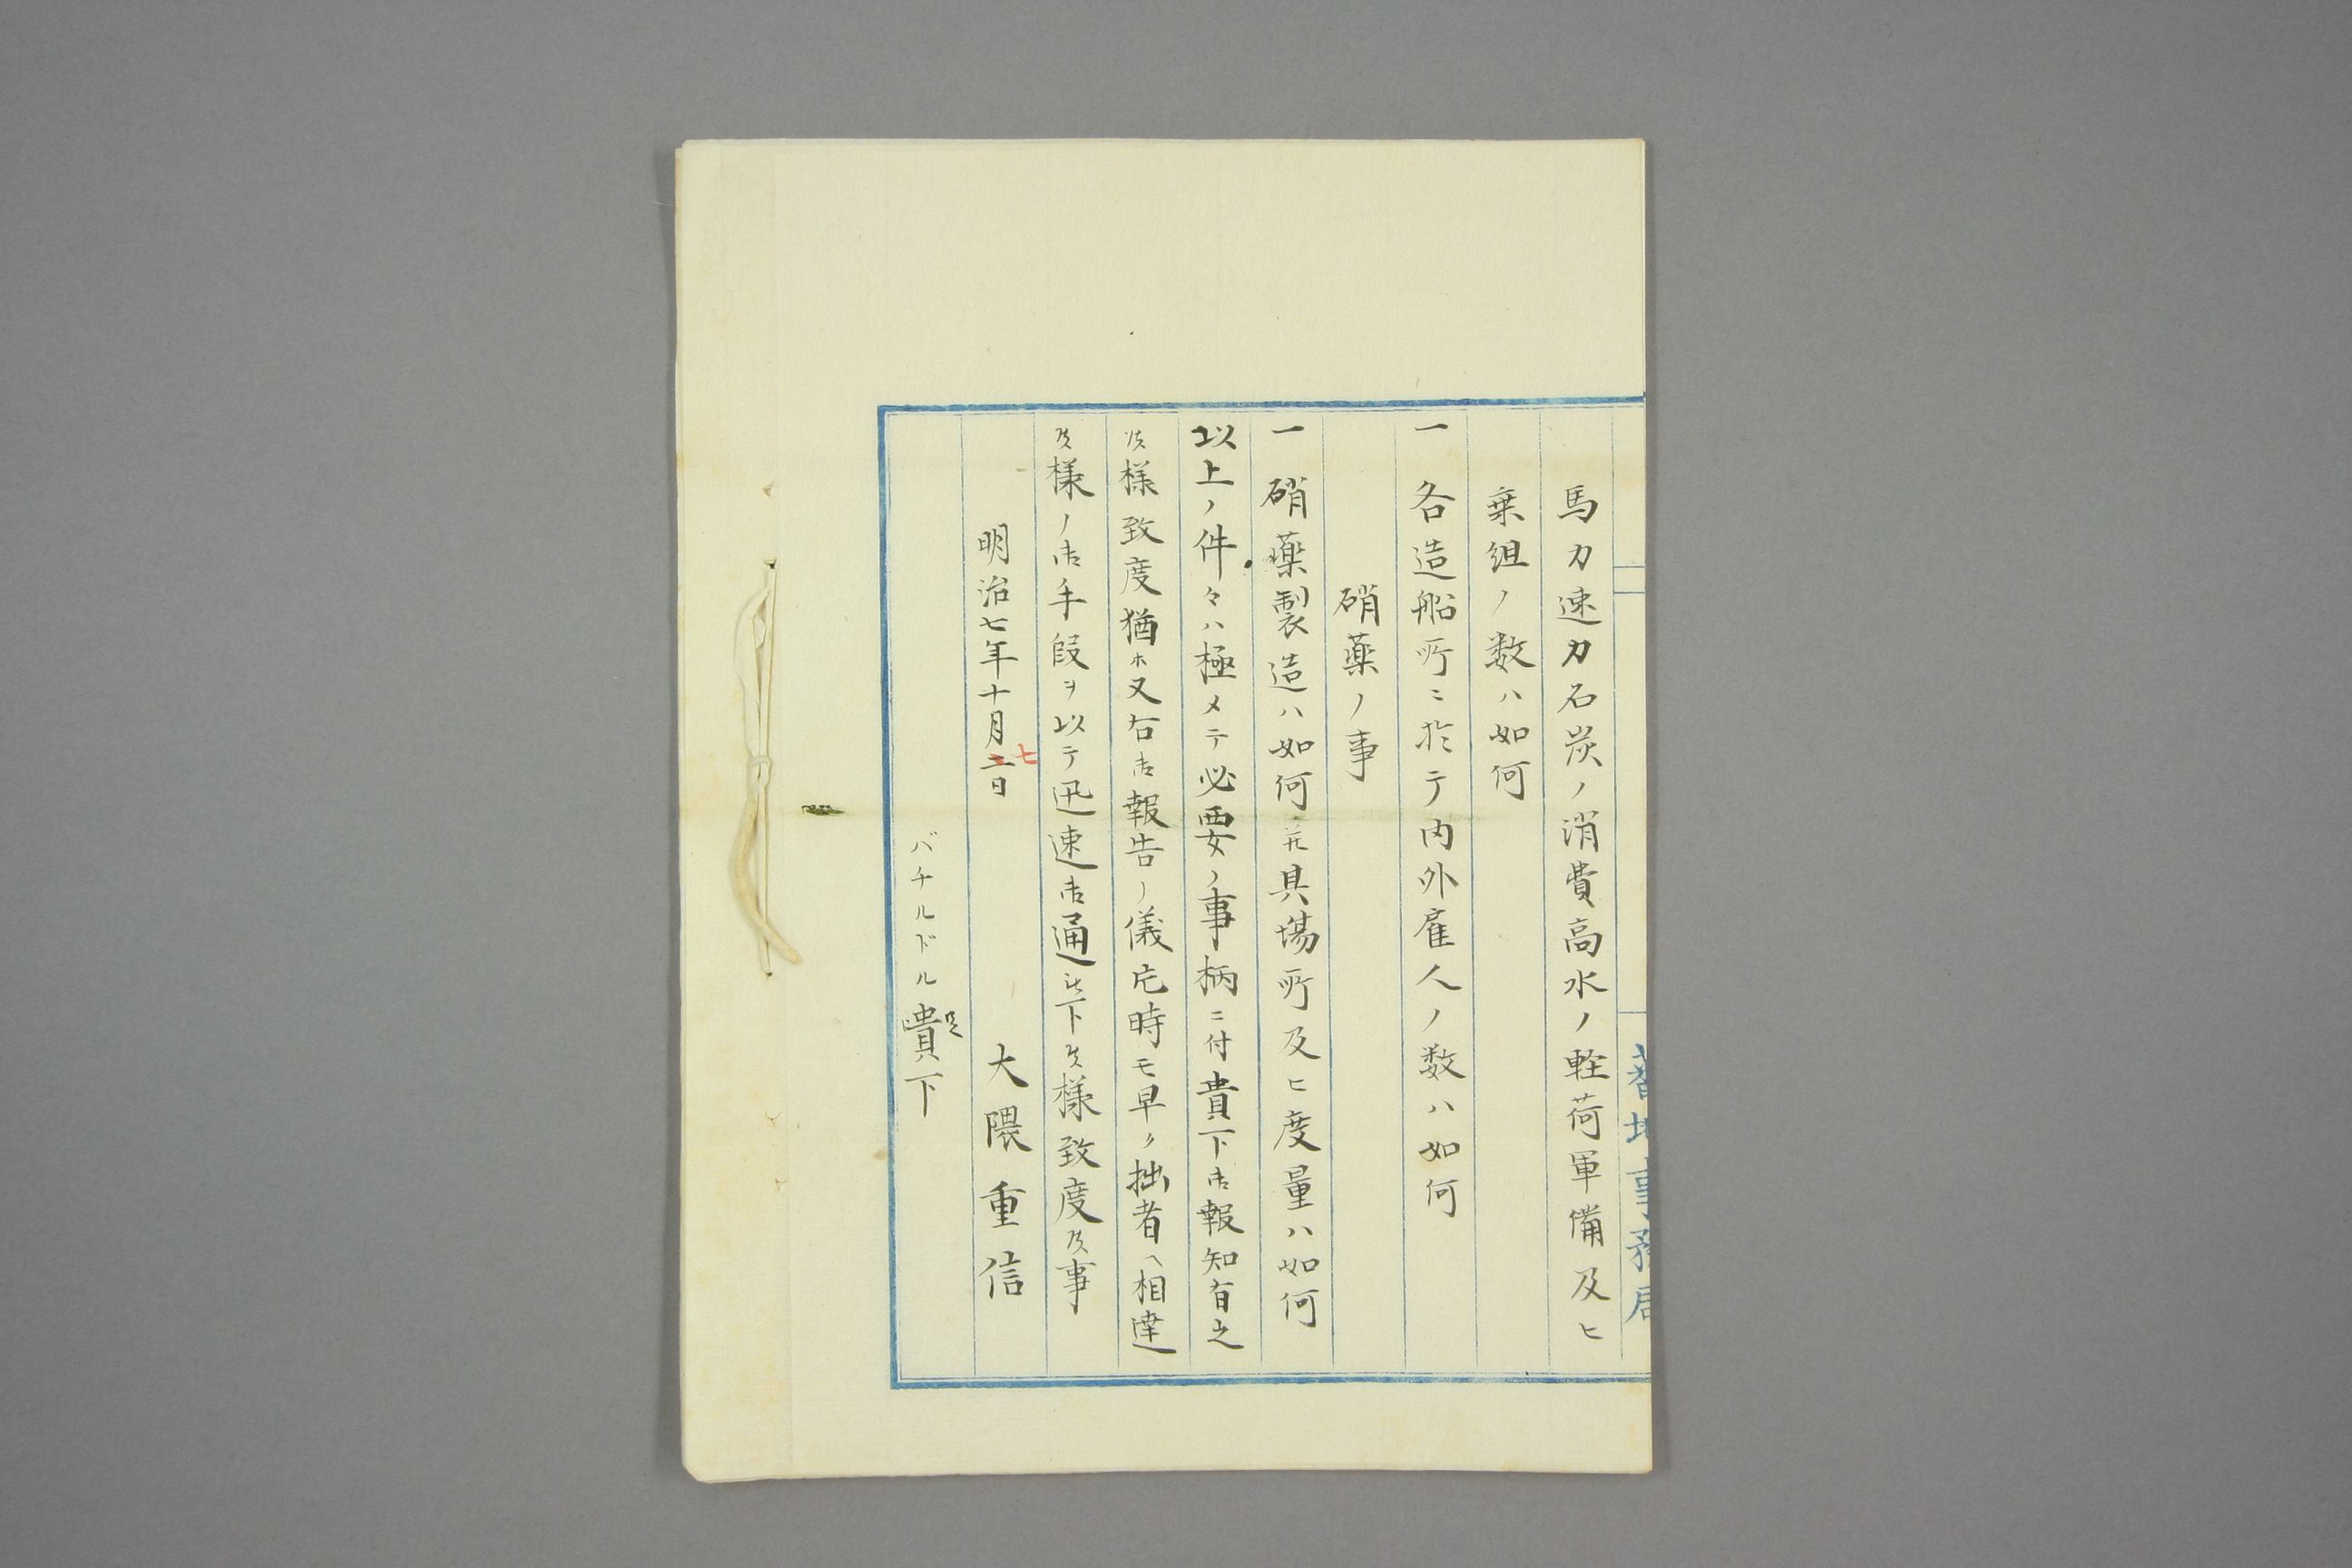 蕃地事務局
馬力速力石炭ノ消費高水ノ軽荷軍備及ヒ
乗組ノ数ハ如何
一 各造船所ニ於テ内外雇人ノ数ハ如何
硝薬ノ事
一 硝薬製造ハ如何并具場所及ヒ度量ハ如何
以上ノ件々ハ極メテ必要ノ事柄ニ付貴下御報知有之
候様致度猶ホ又右御報告ノ儀片時モ早ク拙者ヘ相達
候様ノ御手段ヲ以テ迅速御通シ被下候様致度候事
明治七年十月二日
七
大隈重信
バチルドル貴下